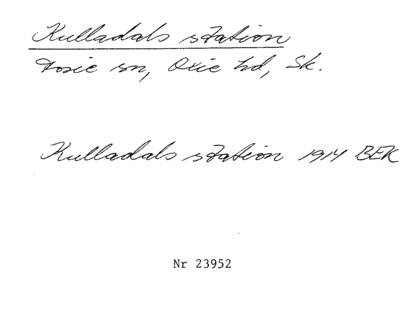 Kulladals station
Fosie sn, Oxie hd, Sk.
Kulladals station 1914 BEK
Nr 23952